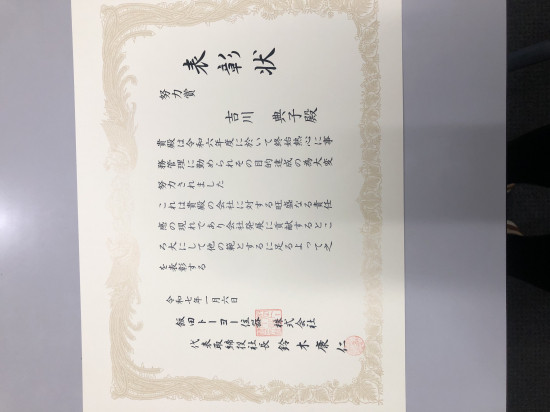 表彰状
努力賞
吉川 典子殿
貴殿は令和六年度に於いて終始熱心に事
務管理に勤められその目的達成の為大変
努力されました
これは貴殿の会社に対する旺盛なる責任
感の現れであり会社発展に貢献するとこ
ろ大にして他の範とするに足るよって之
を表彰する
令和七年一月六日
飯田トーヨー住器株式会社
代表取締役社長 鈴木康仁